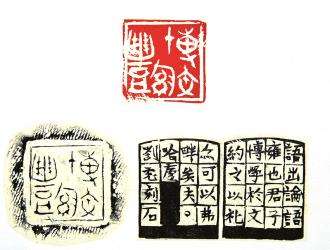 博文
約豊
博文
約豊
語出論語
雍也君子
博學於文
約之以礼
亦可以弗
畔矣夫
哈
刻石